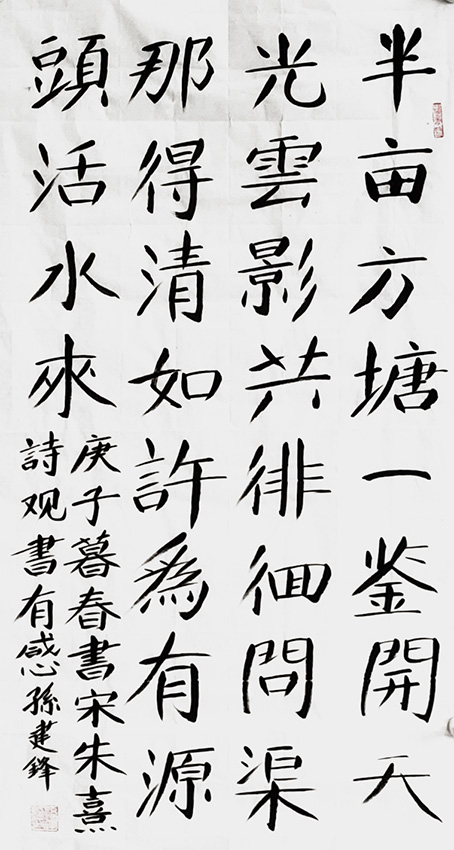 半亩方塘一鉴開天
光雲影共徘徊問渠
那得清如許為有源
頭活水來
庚子暮春書宋朱熹
詩观書有感孫建鋒